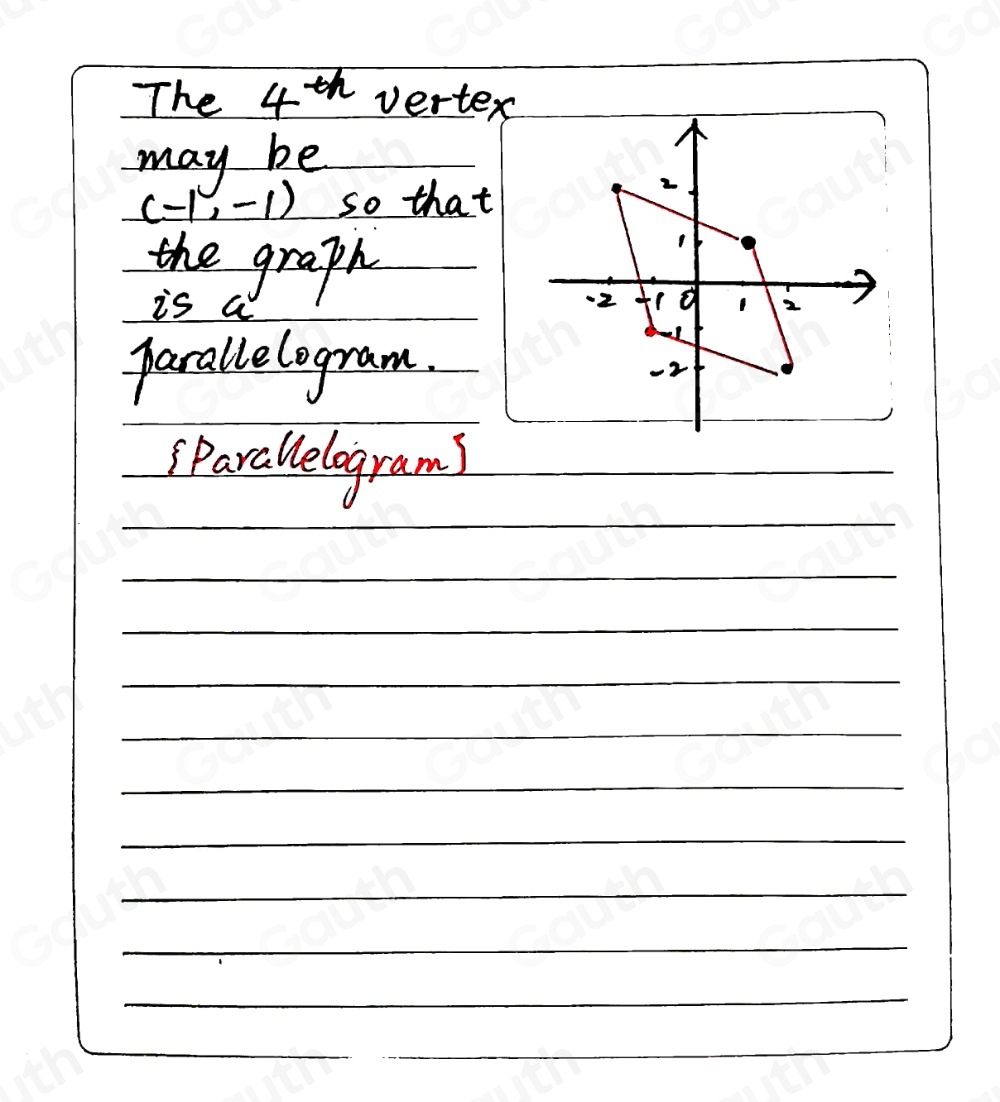 The 4th vertex
may be
(-1, -1) so that
the graph
is a
parallelogram.
{Parallelogram}
2
1
-2 -1 0 1 2
-1
-2
Gauth